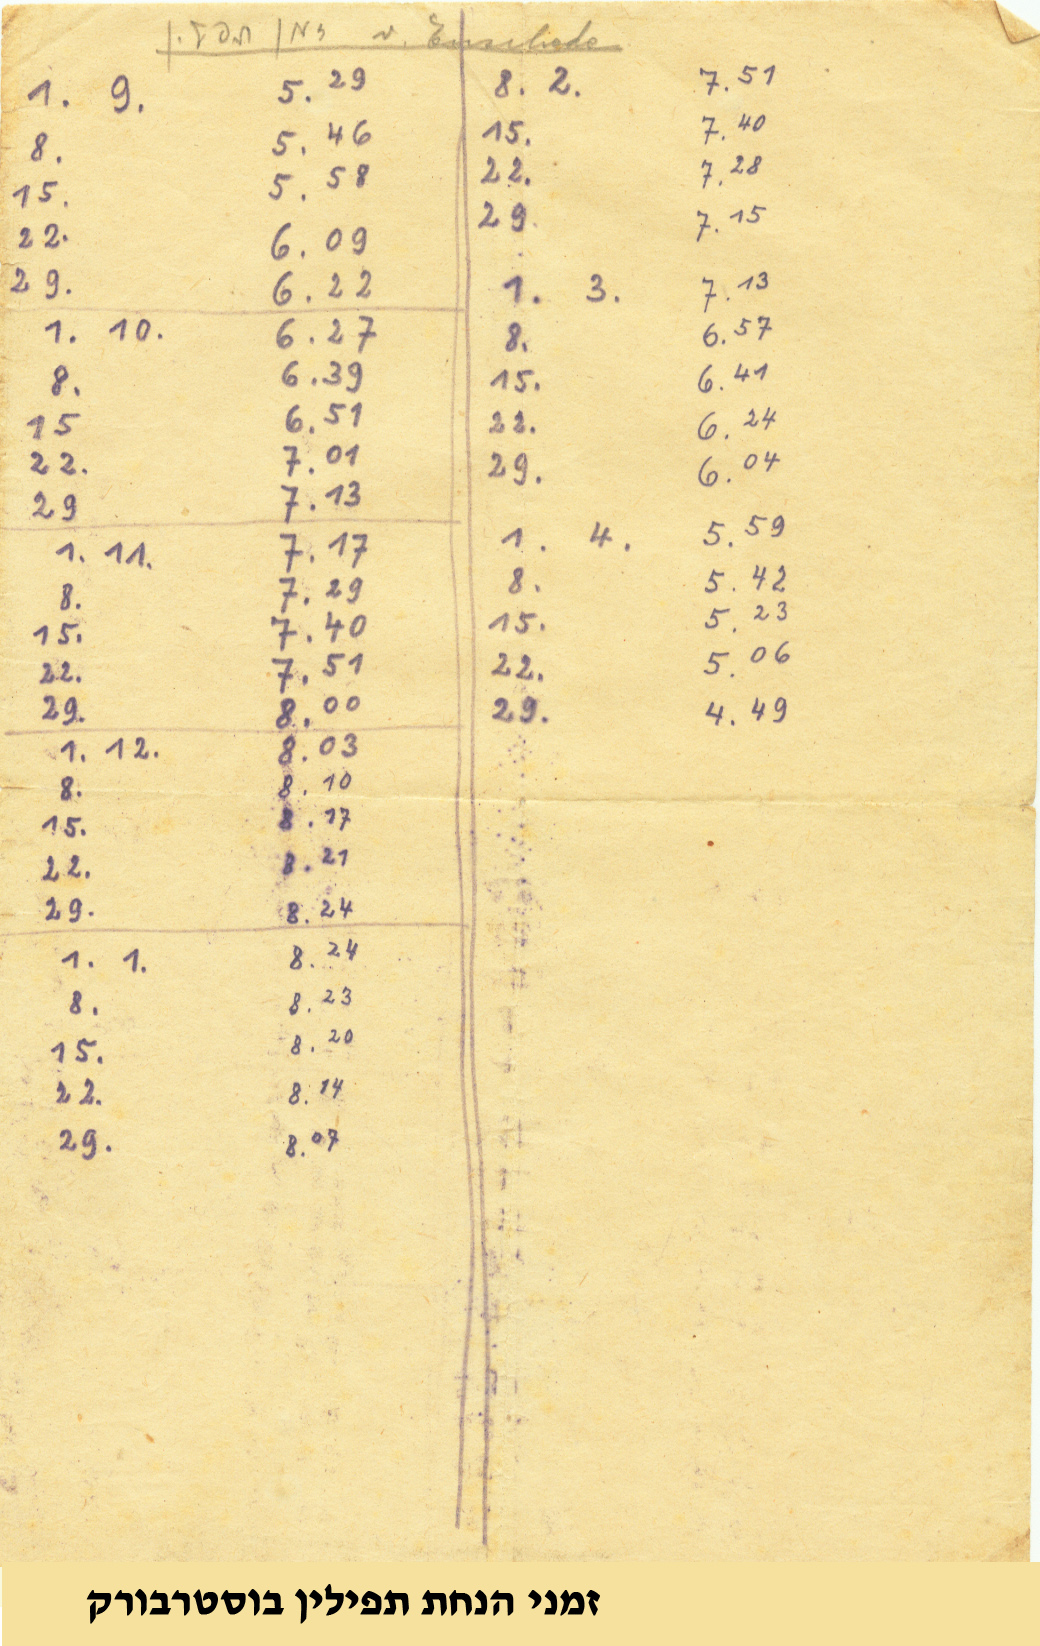 זמן תפלין v. Enschede
1. 9. 5.29
8. 5.46
15. 5.58
22. 6.09
29. 6.22
1. 10. 6.27
8. 6.39
15 6.51
22. 7.01
29 7.13
1. 11. 7.17
8. 7.29
15. 7.40
22. 7.51
29. 8.00
1. 12. 8.03
8. 8.10
15. 8.17
22. 8.21
29. 8.24
1. 1. 8.24
8. 8.23
15. 8.20
22. 8.14
29. 8.07
8. 2. 7.51
15. 7.40
22. 7.28
29. 7.15
1. 3. 7.13
8. 6.57
15. 6.41
22. 6.24
29. 6.04
1. 4. 5.59
8. 5.42
15. 5.23
22. 5.06
29. 4.49
זמני הנחת תפילין בוסטרבורק